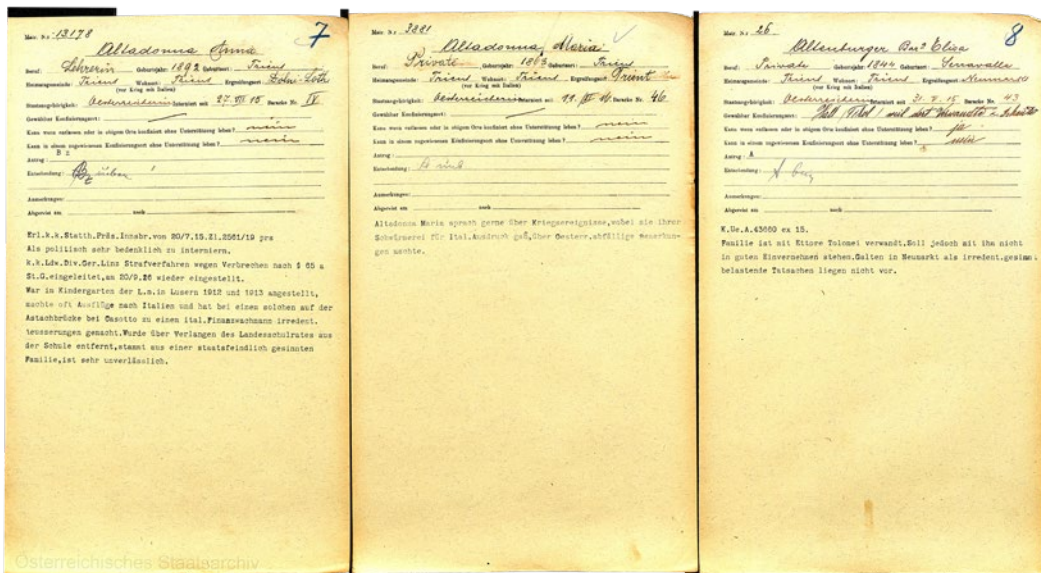 Matr. Nr. 13178
7
Altadonna Anna
Beruf: Lehrerin Geburtsjahr: 1892 Geburtsort: Trient
Heimatsgemeinde: Trient Wohnort: Trient Ergreifungsort:
(vor Krieg mit Italien)
Staatsangehörigkeit: Oesterreicherin Interniert seit 27. VII 15 Baracke Nr. IV
Gewählter Konfinierungsort:
Kann wenn entlassen oder in obigem Orte konfiniert ohne Unterstützung leben? nein
Kann in einem zugewiesenen Konfinierungsort ohne Unterstützung leben? nein
Antrag: Bz
Entscheidung:
Anmerkungen:
Abgereist am nach
Erl.k.k.Statth.Präs.Innsbr.von 20/7.15.Zl.2561/19 prs
Als politisch sehr bedenklich zu internieren.
k.k.Ldw.Div.Ger.Linz Strafverfahren wegen Verbrechen nach § 65 a
St.G.eingeleitet,am 20/9.26 wieder eingestellt.
War in Kindergarten der L.m.in Lusern 1912 und 1913 angestellt,
machte oft Ausflüge nach Italien und hat bei einem solchen auf der
Astachbrücke bei Casotto zu einem ital.Finanzwachmann irredent.
teusserungen gemacht.Wurde über Verlangen des Landesschulrates aus
der Schule entfernt,stammt aus einer staatsfeindlich gesinnten
Familie,ist sehr unverlässlich.
Österreichisches Staatsarchiv
Matr. Nr. 3881
Altadonna Maria
Beruf: Private Geburtsjahr: 1863 Geburtsort: Trient
Heimatsgemeinde: Trient Wohnort: Trient Ergreifungsort: Trient
(vor Krieg mit Italien)
Staatsangehörigkeit: Oesterreicherin Interniert seit Baracke Nr. 46
Gewählter Konfinierungsort:
Kann wenn entlassen oder in obigem Orte konfiniert ohne Unterstützung leben? nein
Kann in einem zugewiesenen Konfinierungsort ohne Unterstützung leben? nein
Antrag:
Entscheidung:
Anmerkungen:
Abgereist am nach
Altadonna Maria sprach gerne über Kriegsereignisse,wobei sie ihrer
Schwärmerei für Ital.Ausdruck gab,über Oesterr.abfällige Bemerkun-
gen machte.
Matr. Nr. 26
8
Altenburger Elisa
Beruf: Private Geburtsjahr: 1844 Geburtsort: Serravalle
Heimatsgemeinde: Trient Wohnort: Trient Ergreifungsort: Neumarkt
(vor Krieg mit Italien)
Staatsangehörigkeit: Oesterreicherin Interniert seit 31. V. 15 Baracke Nr. 43
Gewählter Konfinierungsort: Hall (Tirol) weil dort Verwandte
Kann wenn entlassen oder in obigem Orte konfiniert ohne Unterstützung leben? ja
Kann in einem zugewiesenen Konfinierungsort ohne Unterstützung leben? nein
Antrag: A
Entscheidung:
Anmerkungen:
Abgereist am nach
K.Ue.A.43669 ex 15.
Familie ist mit Ettore Tolomei verwandt.Soll jedoch mit ihm nicht
in guten Einvernehmen stehen.Galten in Neumarkt als irredent.gesinnt
belastende Tatsachen liegen nicht vor.